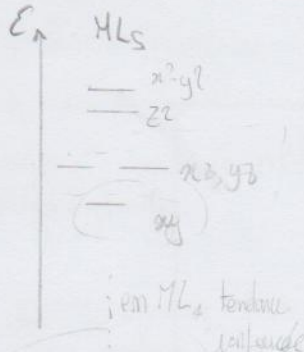 ε ML5
x²-y²
z²
xz, yz
xy
en ML4 tendance